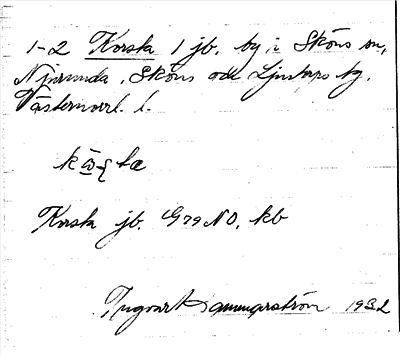 1-2 Korsta 1 jb. by i Sköns sn,
Njurunda, Sköns och Ljustorps tg,
Västernorrl. l.
Korsta jb. G79 NO, kb
Ingvar Hammarström 1932